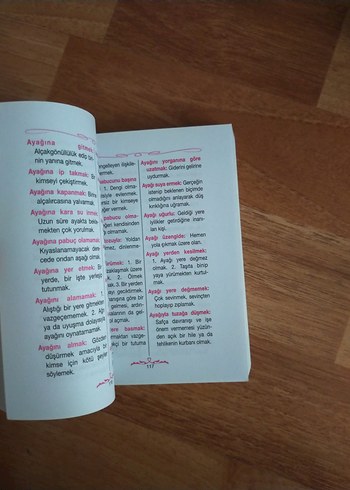 Ayağına gitmek:
Alçakgönüllülük edip
nin yanına gitmek.
Ayağına ip takmak: Bir
kimseyi çekiştirmek.
Ayağına kapanmak:
alçalırcasına yalvarmak.
Ayağına kara su inmek:
Uzun süre ayakta
mekten çok yorulmak.
Ayağına pabuç olamamak:
Kıyaslanamayacak
cede ondan aşağı olmak.
Ayağına yer etmek: Bir
yerde, bir işte yerleşip
tutunmak.
Ayağını alamamak: 1.
Alıştığı bir yere gitmekten
vazgeçememek. 2.
ya da uyuşma dolayısıyla
ayağını oynatamamak.
Ayağını almak: Gözden
düşürmek amacıyla bir
kimse için kötü şeyler
söylemek.
engelleyen ilişkile-
ermek.
başına
1. Dengi olma-
isiyle evlenmek.
rsiz bir kimseye
eğer vermek.
pabucu olma-
eğeri kendisinden
lmamak.
Yoldan
lmek, dinlenme-
1. Bir
zaklaşmak üzere
k. 2. Ölmek
3. Bir yerden
yi geciktirmek.
anışına göre bir
gelmesi, ardın-
alarının da gel-
l açmak.
ere basmak:
maktan vazge-
kçi bir tutuma
Ayağını yorganına göre
uzatmak: Giderini gelirine
uydurmak.
Ayağı suya ermek: Gerçeğin
istenip beklenen biçimde
olmadığını anlayarak düş
kırıklığına uğramak.
Ayağı uğurlu: Geldiği yere
iyilikler getirdiğine inanı-
lan kişi.
Ayağı üzengide: Hemen
yola çıkmak üzere olan.
Ayağı yerden kesilmek:
1. Ayağı yere değmez
olmak. 2. Taşıta binip
yaya yürümekten kurtul-
mak.
Ayağı yere değmemek:
Çok sevinmek, sevinçten
hoplayıp zıplamak.
Ayağıyla tuzağa düşmek:
Safça davranıp ve işe
önem vermemesi yüzün-
den açık bir hile ya da
tehlikenin kurbanı olmak.
117